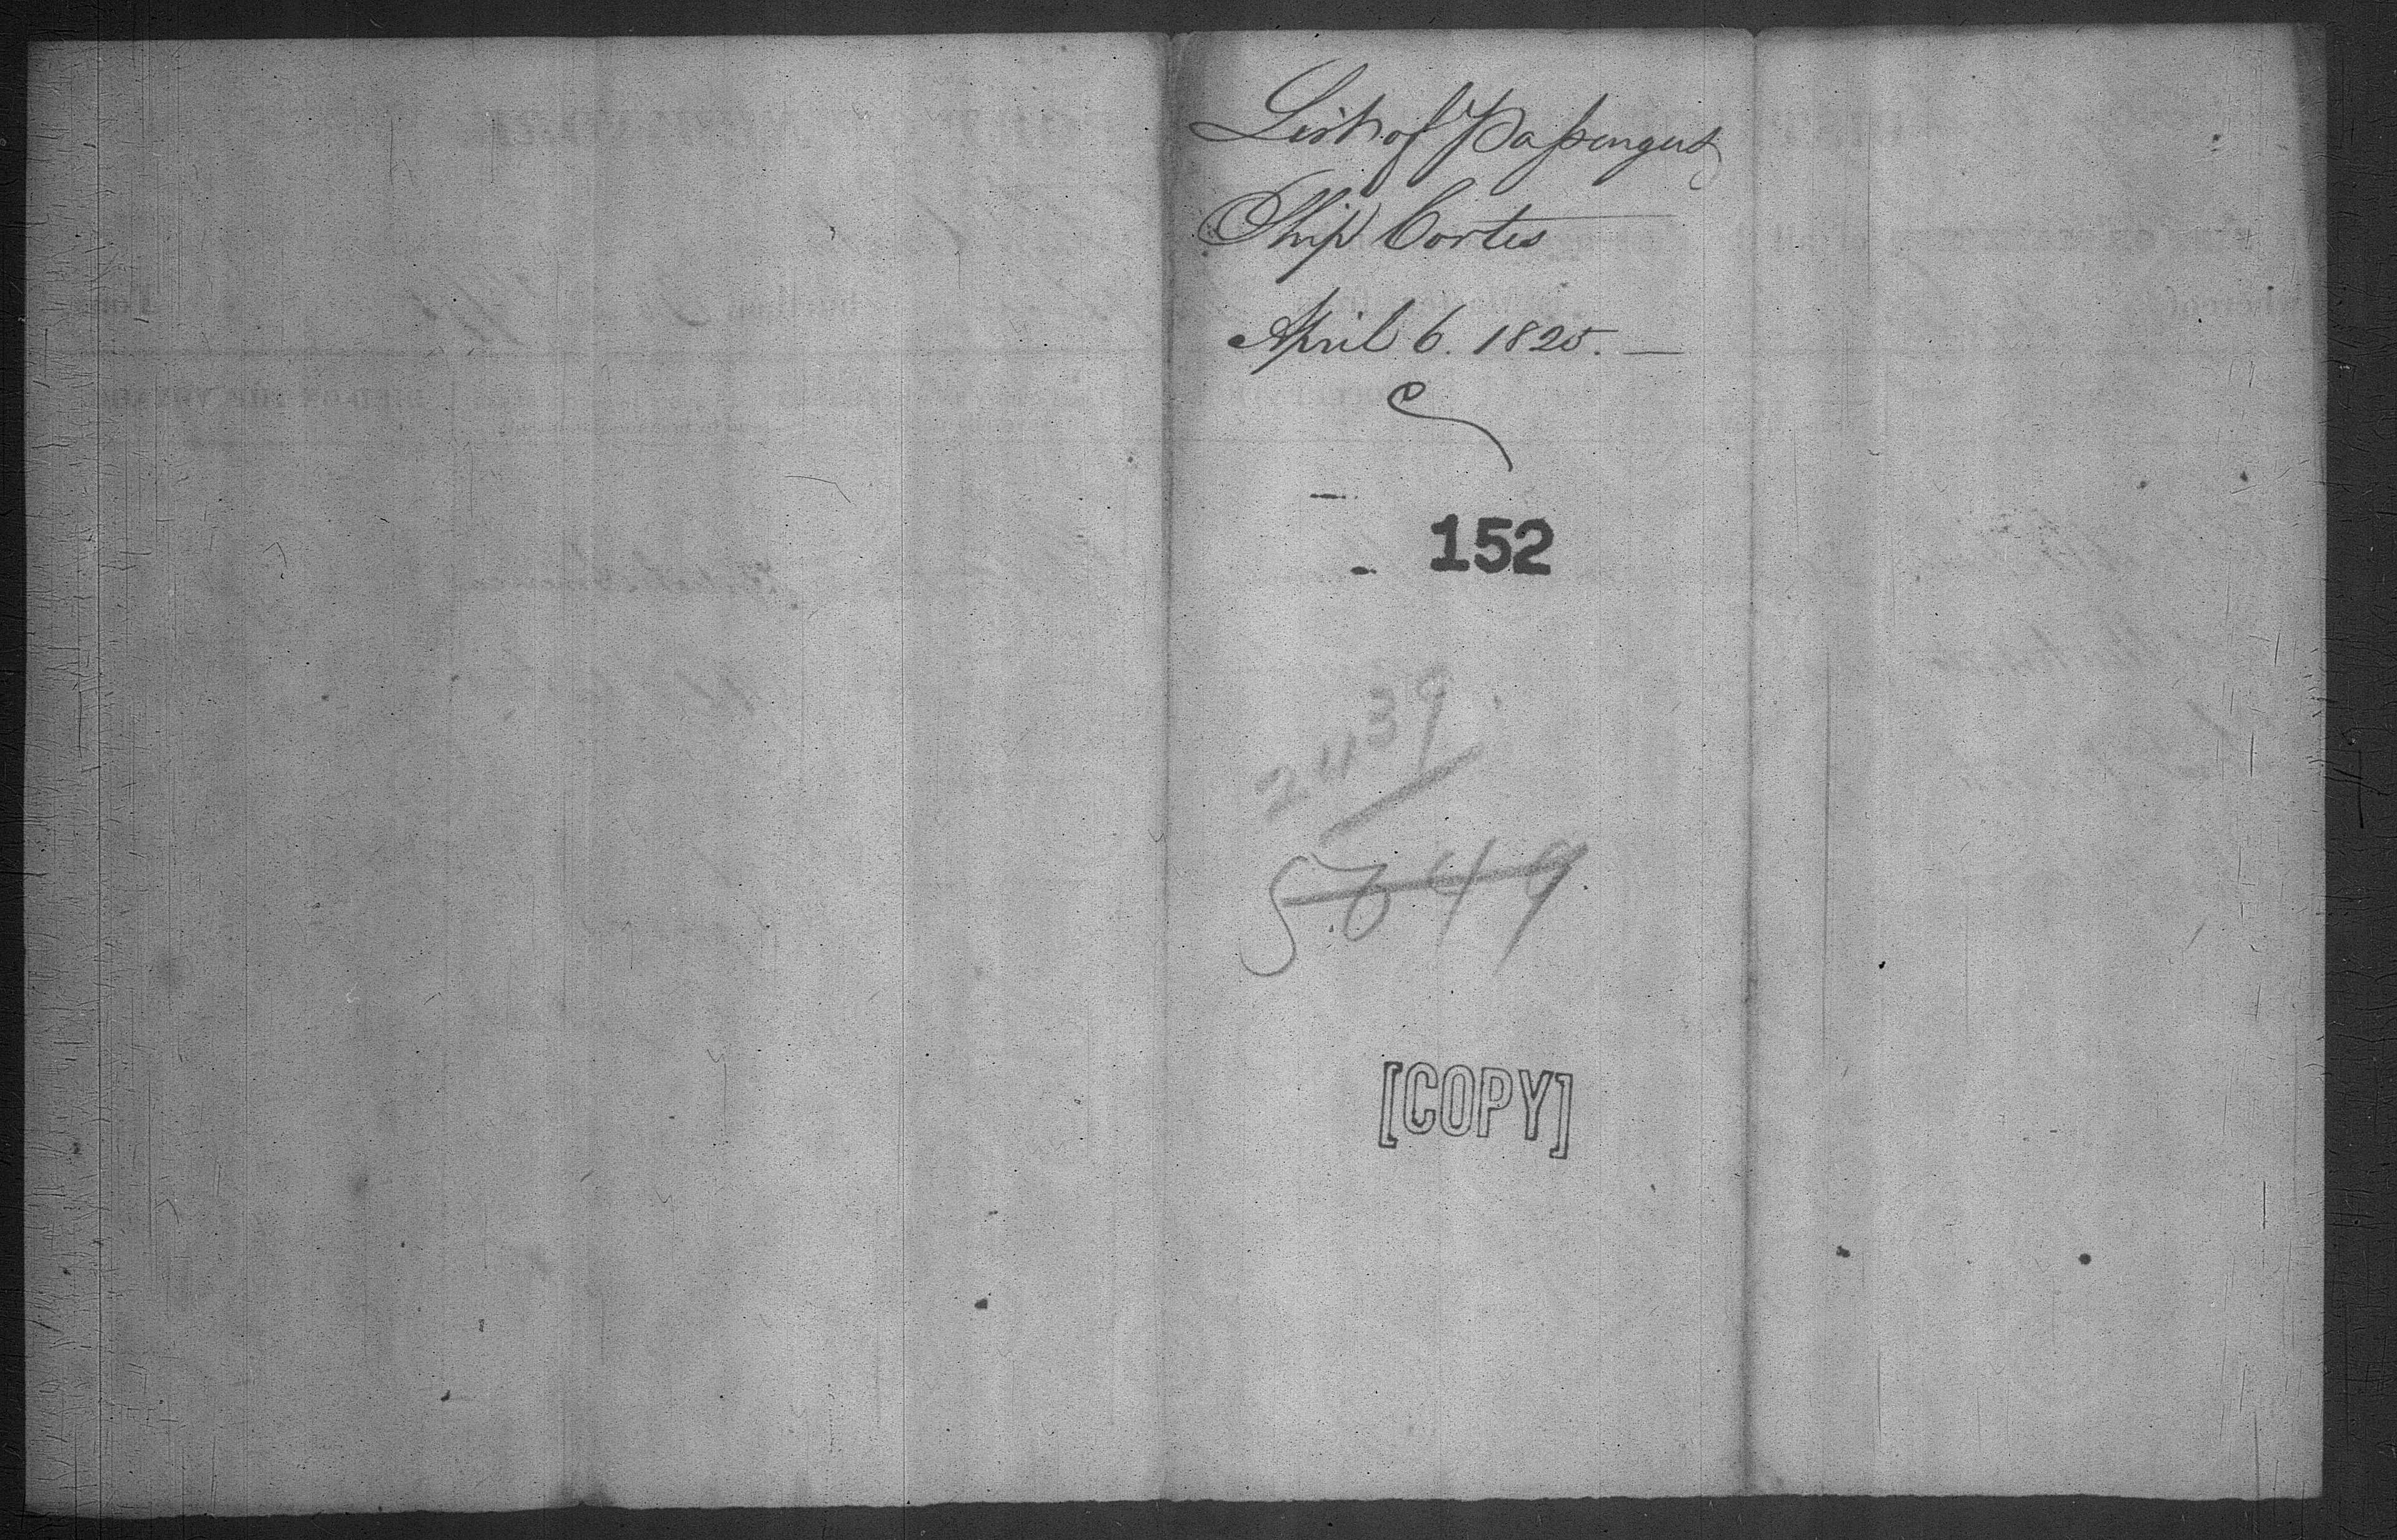 List of Passengers
Ship Cortes
April 6. 1825. —
152
2439
5649
[COPY]